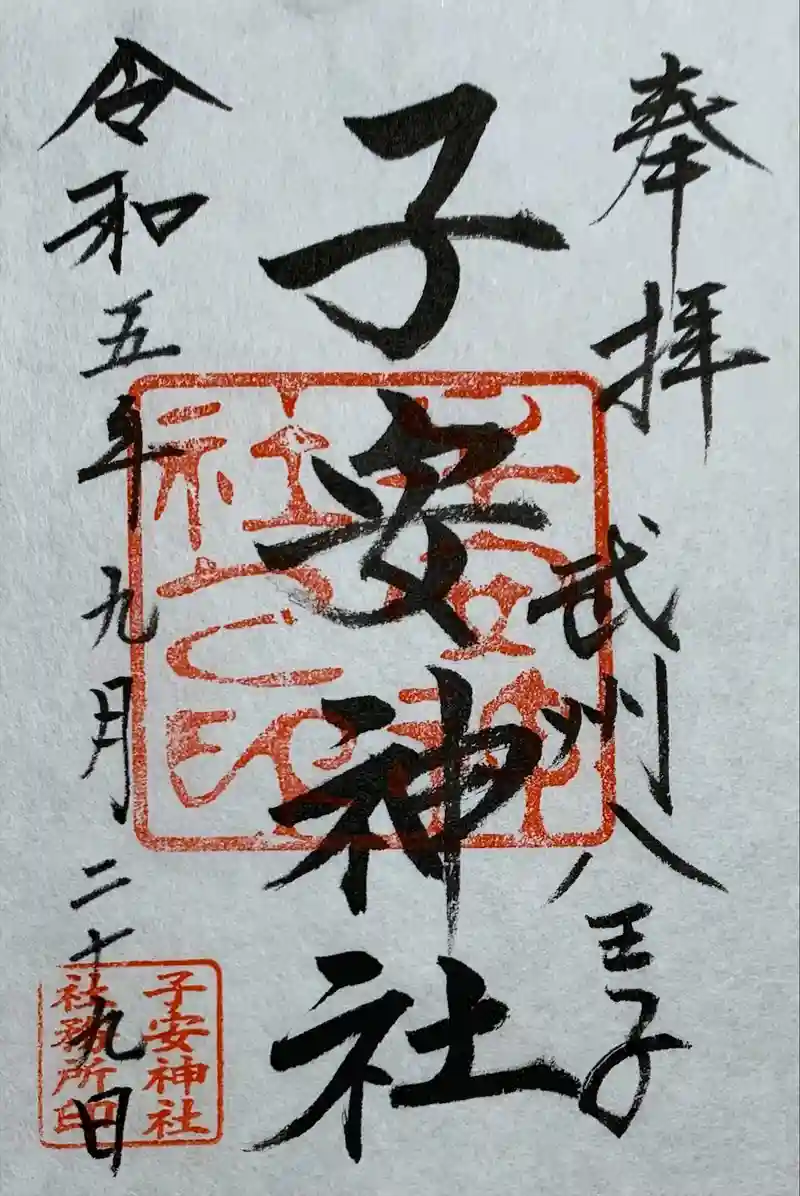 奉拝
武州八王子
子安神社
子安神社之印
令和五年九月二十九日
子安神社
社務所印